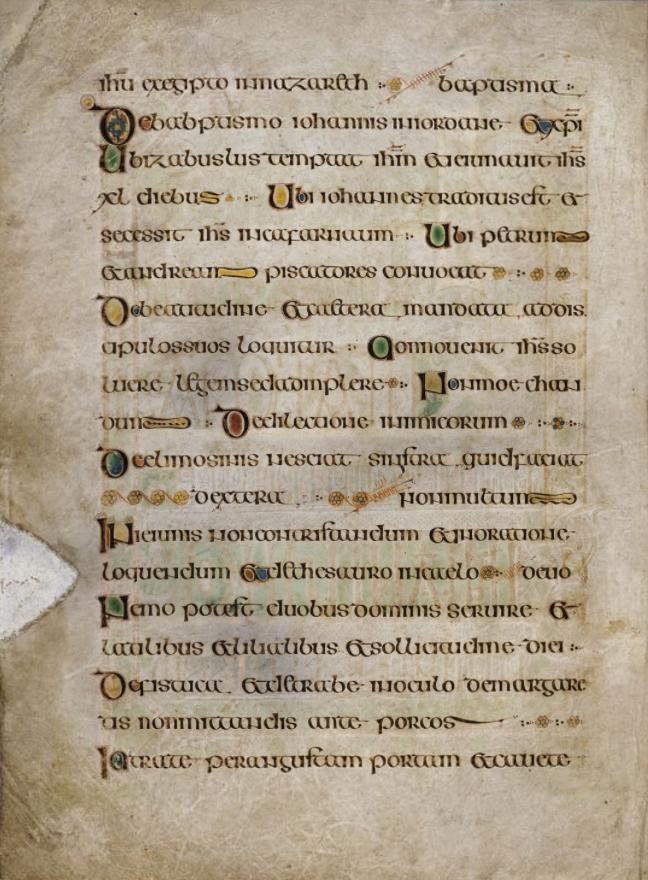 ihū exegipto innazareth baptisma
Debabptismo iohannis iniordane Et xp̄i
Ubizabuslus temptat ihm̄ et ieiunauit ihs̄
xl diebus Ubi iohannes traditus est et
secessit ihs̄ incafarnaum Ubi petrum
et andream piscatores conuocat
Debeatitudine et altera mandata addis
cipulossuos loquitur Qonnouenit ihs̄ so
luere legem sed adimplere Non moechan
dum De dilectione inimicorum
De elimosinis nesciat sinistra quid faciat
dextera non multum
In ieiunis non contristandum et inoratione
loquendum Et de thesauro incaelo deuo
Nemo potest duobus dominis seruire et
latilibus et liliatibus et sollicitudine diei
De fistuca et de trabe inoculo de margare
tis non mittandis ante porcos
Intrate per angustam portam et cauete